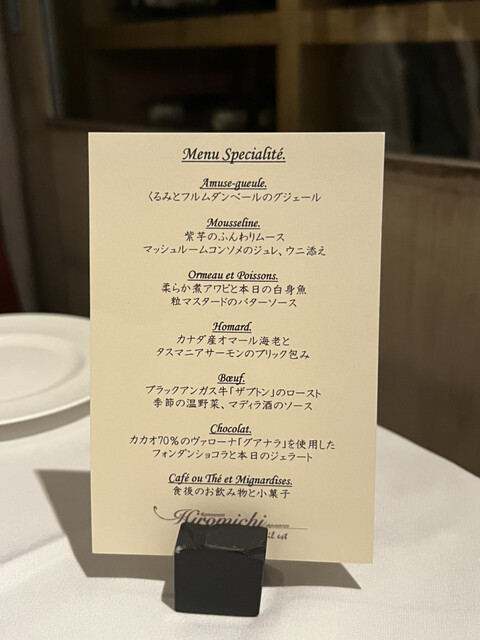 Menu Specialité.
Amuse-gueule.
くるみとフルムダンベールのグジェール
Mousseline.
紫芋のふんわりムース
マッシュルームコンソメのジュレ、ウニ添え
Ormeau et Poissons.
柔らか煮アワビと本日の白身魚
粒マスタードのバターソース
Homard.
カナダ産オマール海老と
タスマニアサーモンのブリック包み
Bœuf.
ブラックアンガス牛「ザブトン」のロースト
季節の温野菜、マディラ酒のソース
Chocolat.
カカオ70%のヴァローナ「グアナラ」を使用した
フォンダンショコラと本日のジェラート
Café ou Thé et Mignardises.
食後のお飲み物と小菓子
Restaurant
Hiromichi
est